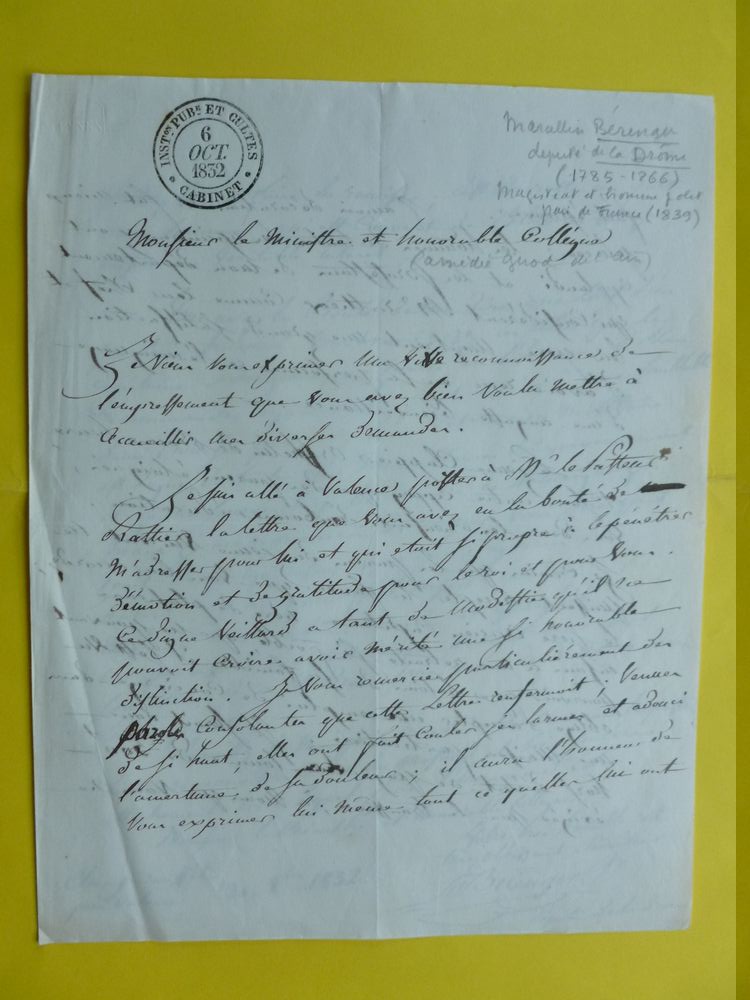 INSTon PUBe ET CULTES
6
OCT.
1832
* CABINET *
Marcellin Bérenger
député de la Drôme
(1785-1866)
Magistrat et homme polit
pair de France (1839)
Monsieur le Ministre et honorable Collègue
(amédée Girod de l'ain)
Je viens vous exprimer ma vive reconnoissance de
l'empressement que vous avez bien voulu mettre à
accueillir mes diverses demandes.
Je suis allé à Valence porter à Mr le Pasteur
la lettre que vous avez eu la bonté de
m'adresser pour lui et qui étoit si propre à le pénétrer
d'émotion et de gratitude pour le roi et pour vous.
Ce digne Vieillard a tant de modestie qu'il ne
pouvoit croire avoir mérité une si honorable
distinction. Je vous remercie particulièrement des
paroles consolantes que cette lettre renfermoit; venues
de si haut, elles ont fait couler ses larmes et adouci
l'amertume de sa douleur; il aura l'honneur de
vous exprimer lui même tout ce qu'elles lui ont